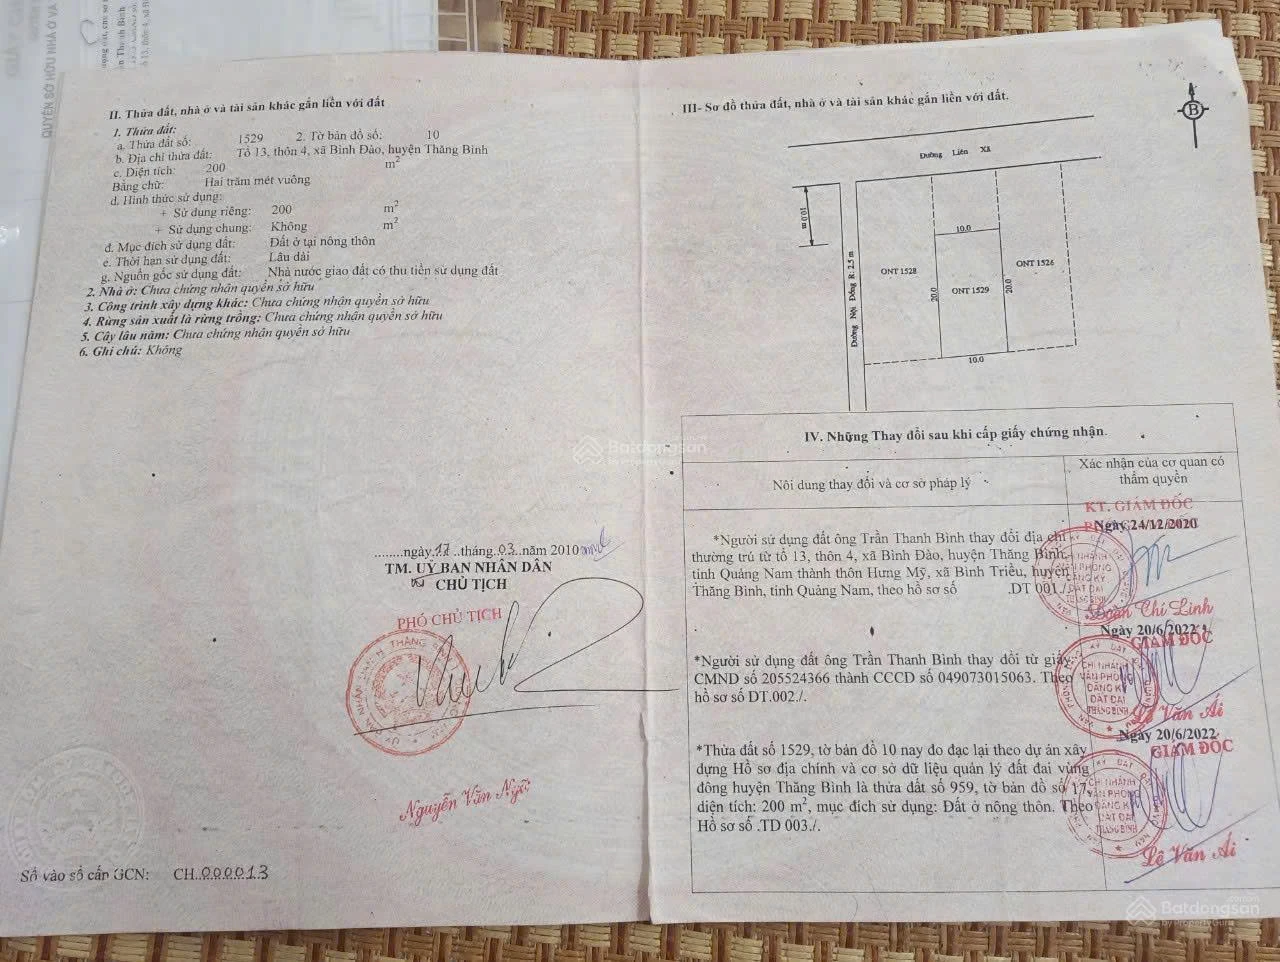 II. Thửa đất, nhà ở và tài sản khác gắn liền với đất
1. Thửa đất:
a. Thửa đất số: 1529 2. Tờ bản đồ số: 10
b. Địa chỉ thửa đất: Tổ 13, thôn 4, xã Bình Đào, huyện Thăng Bình
c. Diện tích: 200 m²
Bằng chữ: Hai trăm mét vuông
d. Hình thức sử dụng:
+ Sử dụng riêng: 200 m²
+ Sử dụng chung: Không m²
đ. Mục đích sử dụng đất: Đất ở tại nông thôn
e. Thời hạn sử dụng đất: Lâu dài
g. Nguồn gốc sử dụng đất: Nhà nước giao đất có thu tiền sử dụng đất
2. Nhà ở: Chưa chứng nhận quyền sở hữu
3. Công trình xây dựng khác: Chưa chứng nhận quyền sở hữu
4. Rừng sản xuất là rừng trồng: Chưa chứng nhận quyền sở hữu
5. Cây lâu năm: Chưa chứng nhận quyền sở hữu
6. Ghi chú: Không
........ngày 17 ..tháng 03 ..năm 2010
TM. UỶ BAN NHÂN DÂN
CHỦ TỊCH
PHÓ CHỦ TỊCH
Nguyễn Văn Ngữ
Số vào sổ cấp GCN: CH 000013
III- Sơ đồ thửa đất, nhà ở và tài sản khác gắn liền với đất.
B
Đường Liên Xã
10.0 m
Đường Nội Đồng R: 2.5 m
10.0
ONT 1528
ONT 1529
ONT 1526
20.0
20.0
10.0
IV. Những Thay đổi sau khi cấp giấy chứng nhận.
Nội dung thay đổi và cơ sở pháp lý
Xác nhận của cơ quan có
thẩm quyền
*Người sử dụng đất ông Trần Thanh Bình thay đổi địa chỉ
thường trú từ tổ 13, thôn 4, xã Bình Đào, huyện Thăng Bình,
tỉnh Quảng Nam thành thôn Hưng Mỹ, xã Bình Triều, huyện
Thăng Bình, tỉnh Quảng Nam, theo hồ sơ số .DT 001./.
KT. GIÁM ĐỐC
Ngày 24/12/2020
CHI NHÁNH
VĂN PHÒNG
ĐĂNG KÝ
ĐẤT ĐAI
THĂNG BÌNH
Đoàn Chí Linh
*Người sử dụng đất ông Trần Thanh Bình thay đổi từ giấy
CMND số 205524366 thành CCCD số 049073015063. Theo
hồ sơ số DT.002./.
Ngày 20/6/2022
GIÁM ĐỐC
CHI NHÁNH
VĂN PHÒNG
ĐĂNG KÝ
ĐẤT ĐAI
THĂNG BÌNH
Lê Văn Ái
*Thửa đất số 1529, tờ bản đồ 10 nay đo đạc lại theo dự án xây
dựng Hồ sơ địa chính và cơ sở dữ liệu quản lý đất đai vùng
đông huyện Thăng Bình là thửa đất số 959, tờ bản đồ số 17,
diện tích: 200 m², mục đích sử dụng: Đất ở nông thôn. Theo
Hồ sơ số .TD 003./.
Ngày 20/6/2022
GIÁM ĐỐC
CHI NHÁNH
VĂN PHÒNG
ĐĂNG KÝ
ĐẤT ĐAI
THĂNG BÌNH
Lê Văn Ái
Batdongsan
by PropertyGuru
Batdongsan
by PropertyGuru